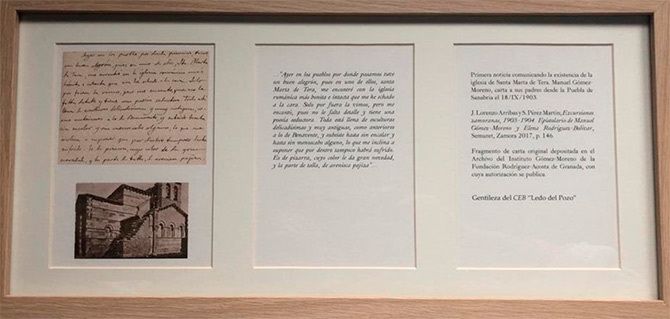 Ayer en los pueblos por donde pasamos tuve
un buen alegrón, pues en uno de ellos, Sta. Marta
de Tera, me encontré con la iglesia románica más
bonita
"Ayer en los pueblos por donde pasamos tuve
un buen alegrón, pues en uno de ellos, santa
Marta de Tera, me encontré con la iglesia
románica más bonita e intacta que me he echado
a la cara. Solo por fuera la vimos, pero me
encantó, pues no le falta detalle y tiene una
pátina seductora. Toda está llena de esculturas
delicadísimas y muy antiguas, como anteriores
a lo de Benavente, y subsiste todo sin encalar y
hasta sin menoscabo alguno, lo que me inclina a
suponer que por dentro tampoco habrá sufrido.
Es de pizarra, cuyo color le da gran novedad,
y la parte de talla, de arenisca pajiza".
Primera noticia comunicando la existencia de la
iglesia de Santa Marta de Tera. Manuel Gómez-
Moreno, carta a sus padres desde la Puebla de
Sanabria el 18/IX/1903.
J. Lorenzo Arribas y S. Pérez Martín, Excursiones
zamoranas, 1903-1904. Epistolario de Manuel
Gómez-Moreno y Elena Rodríguez-Bolívar,
Semuret, Zamora 2017, p. 146
Fragmento de carta original depositada en el
Archivo del Instituto Gómez-Moreno de la
Fundación Rodríguez-Acosta de Granada, con
cuya autorización se publica.
Gentileza del CEB "Ledo del Pozo"